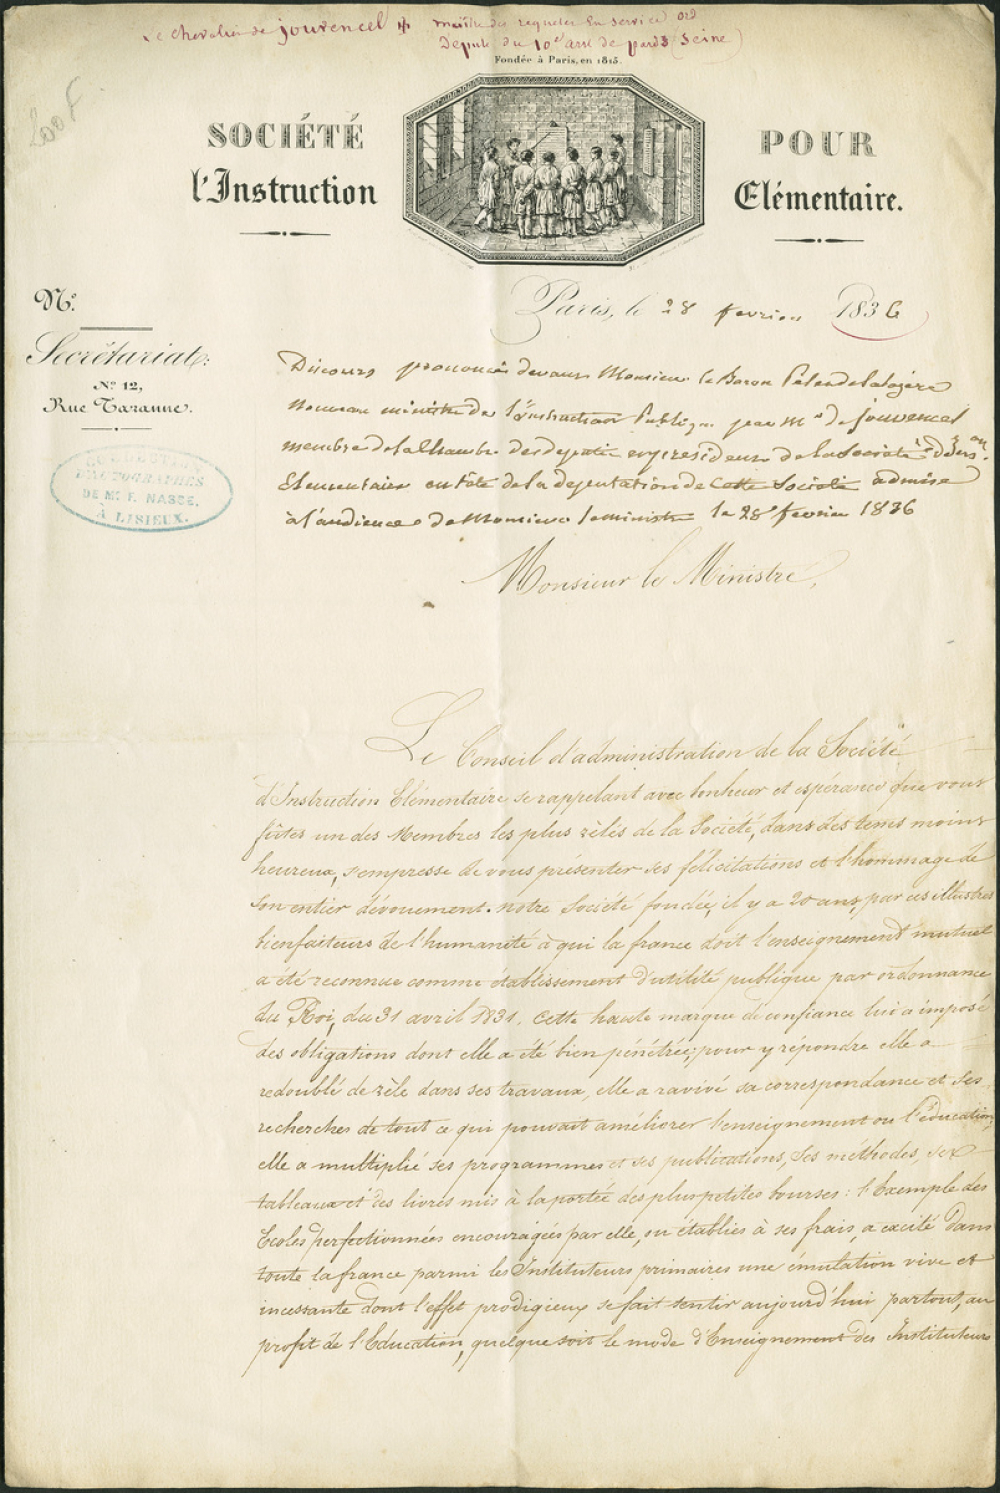 Le Chevalier de Jouvencel maître des requetes En service ord
Député du 10e arrt de paris (Seine)
200 f
Fondée à Paris, en 1815.
SOCIÉTÉ POUR
l'Instruction Elémentaire.
Nº.
Paris, le 28 fevrier 1836
Secrétariat:
Nº 12,
Rue Taranne.
COLLECTION
D'AUTOGRAPHES
DE Mr. F. NASSE,
À LISIEUX.
Discours prononcé devant Monsieur le Baron Pelet de la Lozère
Nouveau ministre de l'instruction Publique par Mr de Jouvencel
membre de la Chambre des députés vice président de la Société d'Ins.on
Elementaire en tête de la deputation de Cette Société admise
à l'audience de Monsieur le ministre le 28 fevrier 1836
Monsieur le Ministre,
Le Conseil d'administration de la Société
d'Instruction Elémentaire se rappelant avec bonheur et espérance que vous
fûtes un des Membres les plus zèlés de la Société, dans des tems moins
heureux, s'empresse de vous présenter ses félicitations et l'hommage de
son entier dévouement. notre Société fondée, il y a 20 ans, par ces illustres
bienfaiteurs de l'humanité à qui la france doit l'enseignement mutuel
a été reconnue comme établissement d'utilité publique par ordonnance
du Roi, du 31 avril 1831. Cette haute marque de confiance lui a imposé
des obligations dont elle a été bien pénétrée; pour y répondre elle a
redoublé de zèle dans ses travaux, elle a ravivé sa correspondance et ses
recherches de tout ce qui pouvait améliorer l'enseignement ou l'éducation,
elle a multiplié ses programmes et ses publications, ses méthodes, ses
tableaux et des livres mis à la portée des plus petites bourses: l'Exemple des
Ecoles perfectionnées encouragées par elle, ou établies à ses frais, a excité dans
toute la france parmi les Instituteurs primaires une émulation vive et
incessante dont l'effet prodigieux se fait sentir aujourd'hui partout, au
profit de l'Education, quelque soit le mode d'Enseignement des Instituteurs